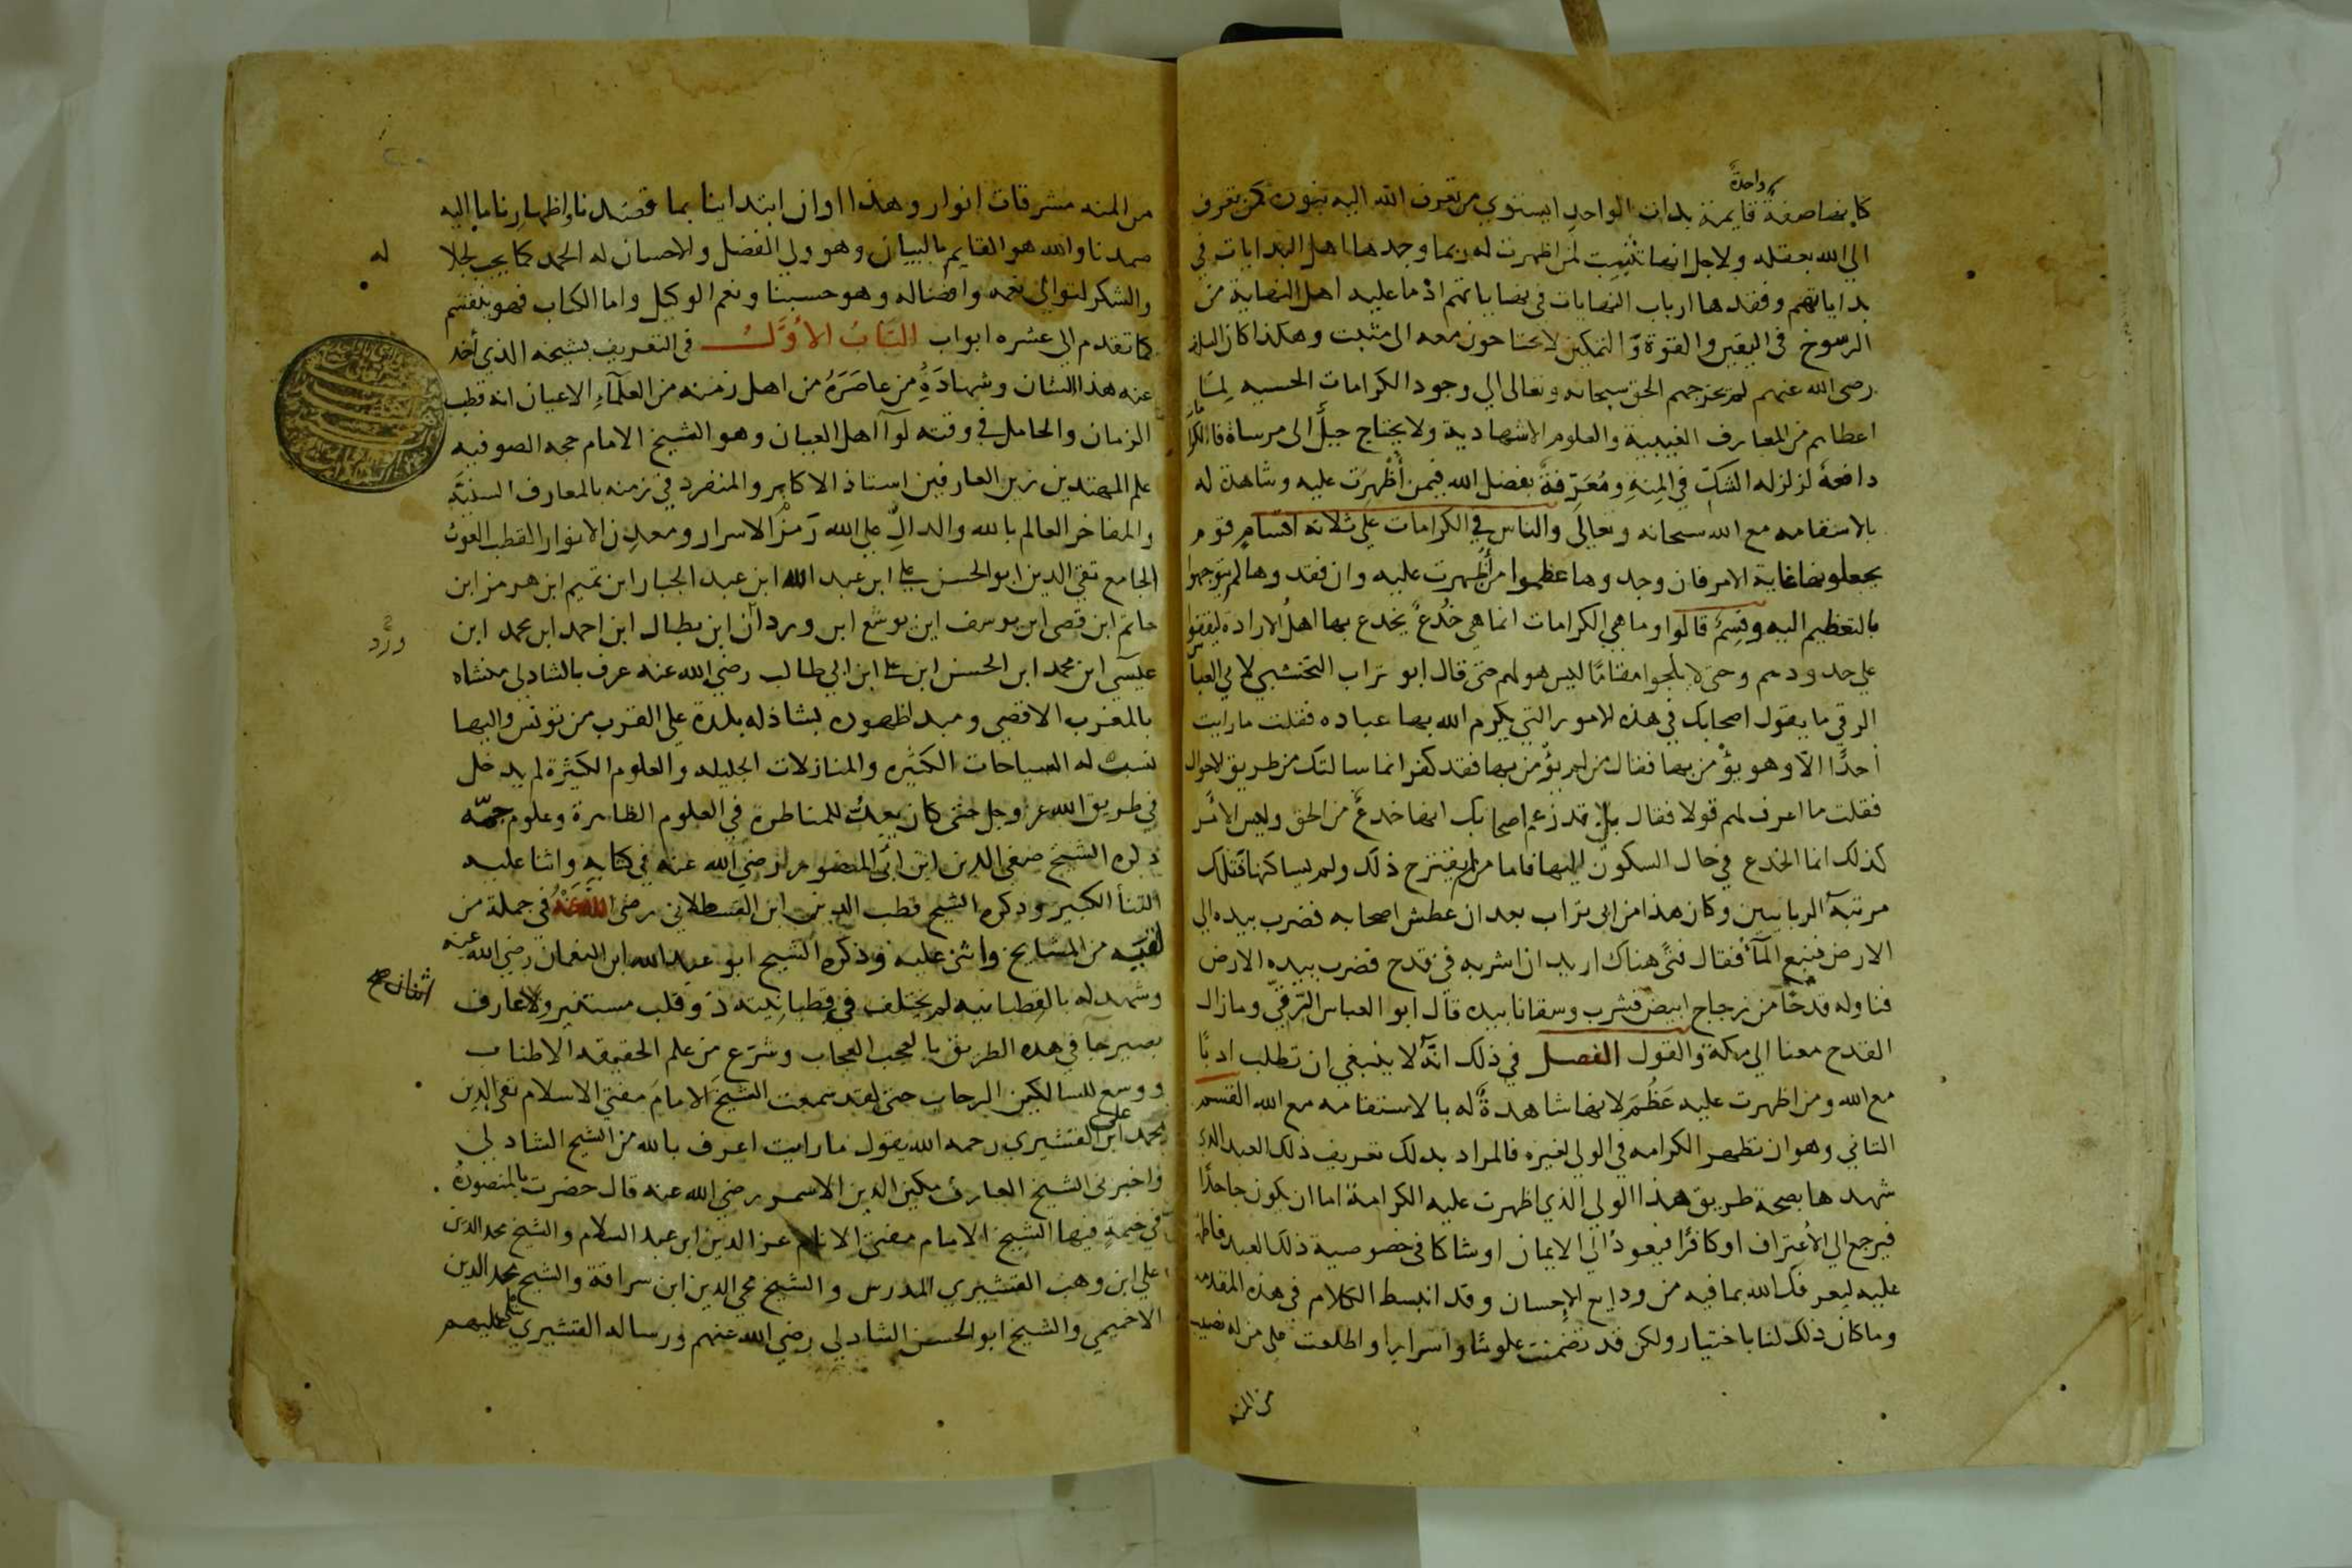 واحدة
كانها صفة قايمة بذات الواحد ايستوي من تعرف الله اليه بنوره كمن تعرف
الي الله بعقله ولاجل انها تثبيت لمن اظهرت له ربما وجدها اهل البدايات في
بداياتهم وفقدها ارباب النهايات في نهاياتهم اذ ما عليه اهل النهاية من
الرسوخ في اليقين والقوة والتمكين لا يحتاجون معه الى مثبت وهكذا كان السلف
رضي الله عنهم لم يحوجهم الحق سبحانه وتعالى الي وجود الكرامات الحسيه لما
اعطاهم من المعارف الغيبية والعلوم الاشهادية ولا يحتاج جبل الى مرساة فالكرامات
دافعة لزلزله الشك في المنة ومعرفة بفضل الله فيمن أظهرت عليه وشاهدة له
بالاستقامه مع الله سبحانه وتعالى والناس في الكرامات على ثلاثه اقسام قوم
يجعلونها غاية الامر فان وجدوها عظموا من أظهرت عليه وان فقدوها لم يتوجهوا
بالتعظيم اليه وقسم قالوا وما هي الكرامات انما هي خدع يخدع بها اهل الارادة ليقفوا
علي حدودهم وحتى لا يلجوا مقاما ليس هو لهم حتى قال ابو تراب النخشبي لابي العباس
الرقي ما يقول اصحابك في هذه الامور التي يكرم الله بها عباده فقلت ما رايت
أحدا الا وهو يؤمن بها فقال من لم يؤمن بها فقد كفر انما سالتك من طريق الاحوال
فقلت ما اعرف لهم قولا فقال بلى قد زعم اصحابك انها خدع من الحق وليس الامر
كذلك انما الخدع في حال السكون اليها فاما من لم يقترح ذلك ولم يساكنها فتلك
مرتبة الربانيين وكان هذا من ابي تراب بعد ان عطش اصحابه فضرب بيده الي
الارض فنبع المآء فقال فتى هناك اريد ان اشربه في قدح فضرب بيده الارض
فناوله قدحا من زجاج ابيض فشرب وسقانا بيده قال ابو العباس الرقي ومازال
القدح معنا الي مكة والقول الفصل في ذلك انه لا ينبغي ان تطلب ادبا
مع الله ومن اظهرت عليه عظم لانها شاهدة له بالاستقامه مع الله القسم
الثاني وهو ان تظهر الكرامه في الولي لغيره فالمراد بذلك تعريف ذلك العبد الذي
شهدها بصحة طريق هذا الولي الذي اظهرت عليه الكرامة اما ان يكون جاحدا
فيرجع الي الاعتراف او كافرا فيعود الي الايمان او شاكا في خصوصية ذلك العبد فاظهرت
عليه ليعرفك الله بما فيه من ودايع الاحسان وقد انبسط الكلام في هذه المقدمه
وما كان ذلك لنا باختيار ولكن قد تضمنت علوما واسرارا واطلعت على من له نصيب
من المنه
من المنه مشرقات انوار وهذا اوان ابتداينا بما قصدنا واظهارنا ما اليه
صمدنا والله هو القايم بالبيان وهو ولي الفضل والاحسان له الحمد كما يجب لجلا
له
والشكر لتوالي نعمه وافضاله وهو حسبنا ونعم الوكيل واما الكتاب فهو ينقسم
كما تقدم الي عشره ابواب الباب الاول في التعريف بشيخه الذي أخذ
عنه هذا الشان وشهادة من عاصره من اهل زمنه من العلمآء الاعيان انه قطب
الزمان والحامل في وقته لوآ اهل العيان وهو الشيخ الامام حجه الصوفيه
علم المهتدين زين العارفين استاذ الاكابر والمنفرد في زمنه بالمعارف السنية
والمفاخر العالم بالله والدال على الله زمزم الاسرار ومعدن الانوار القطب الغوث
الجامع تقي الدين ابو الحسن علي ابن عبد الله ابن عبد الجبار ابن تميم ابن هرمز ابن
حاتم ابن قصي ابن يوسف ابن يوشع ابن ورد ان ابن بطال ابن احمد ابن محمد ابن
ورد
عيسى ابن محمد ابن الحسن ابن علي ابن ابي طالب رضي الله عنه عرف بالشاذلي منشاه
بالمغرب الاقصي ومبدا ظهوره بشاذله بلدة علي القرب من تونس واليها
نسب له السياحات الكثيره والمنازلات الجليله والعلوم الكثيرة لم يدخل
في طريق الله عز وجل حتى كان يعد للمناظرة في العلوم الظاهرة وعلوم جمه
ذكره الشيخ صفي الدين ابن ابي المنصور رضي الله عنه في كتابه واثنا عليه
الثنا الكبير وذكره الشيخ قطب الدين ابن القسطلاني رضي الله عنه في جملة من
لقيه من المشايخ واثنى عليه وذكره الشيخ ابو عبد الله ابن النعمان رضي الله عنه
وشهد له بالقطبانيه لم يختلف في قطبانيته ذو قلب مستنير ولا عارف
اثنان صح
بصير جا في هذه الطريق بالعجب العجاب وشرع من علم الحقيقه الاطناب
ووسع للسالكين الرحاب حتى لقد سمعت الشيخ الامام مفتي الاسلام تقي الدين
محمد ابن علي القشيري رحمه الله يقول ما رايت اعرف بالله من الشيخ الشاذلي
واخبرني الشيخ العارف مكين الدين الاسمر رضي الله عنه قال حضرت بالمنصورة
في خيمة فيها الشيخ الامام مفتي الانام عز الدين ابن عبد السلام والشيخ مجد الدين
علي ابن وهب القشيري المدرس والشيخ محي الدين ابن سراقة والشيخ مجد الدين
الاخميمي والشيخ ابو الحسن الشاذلي رضي الله عنهم ورساله القشيري عليهم